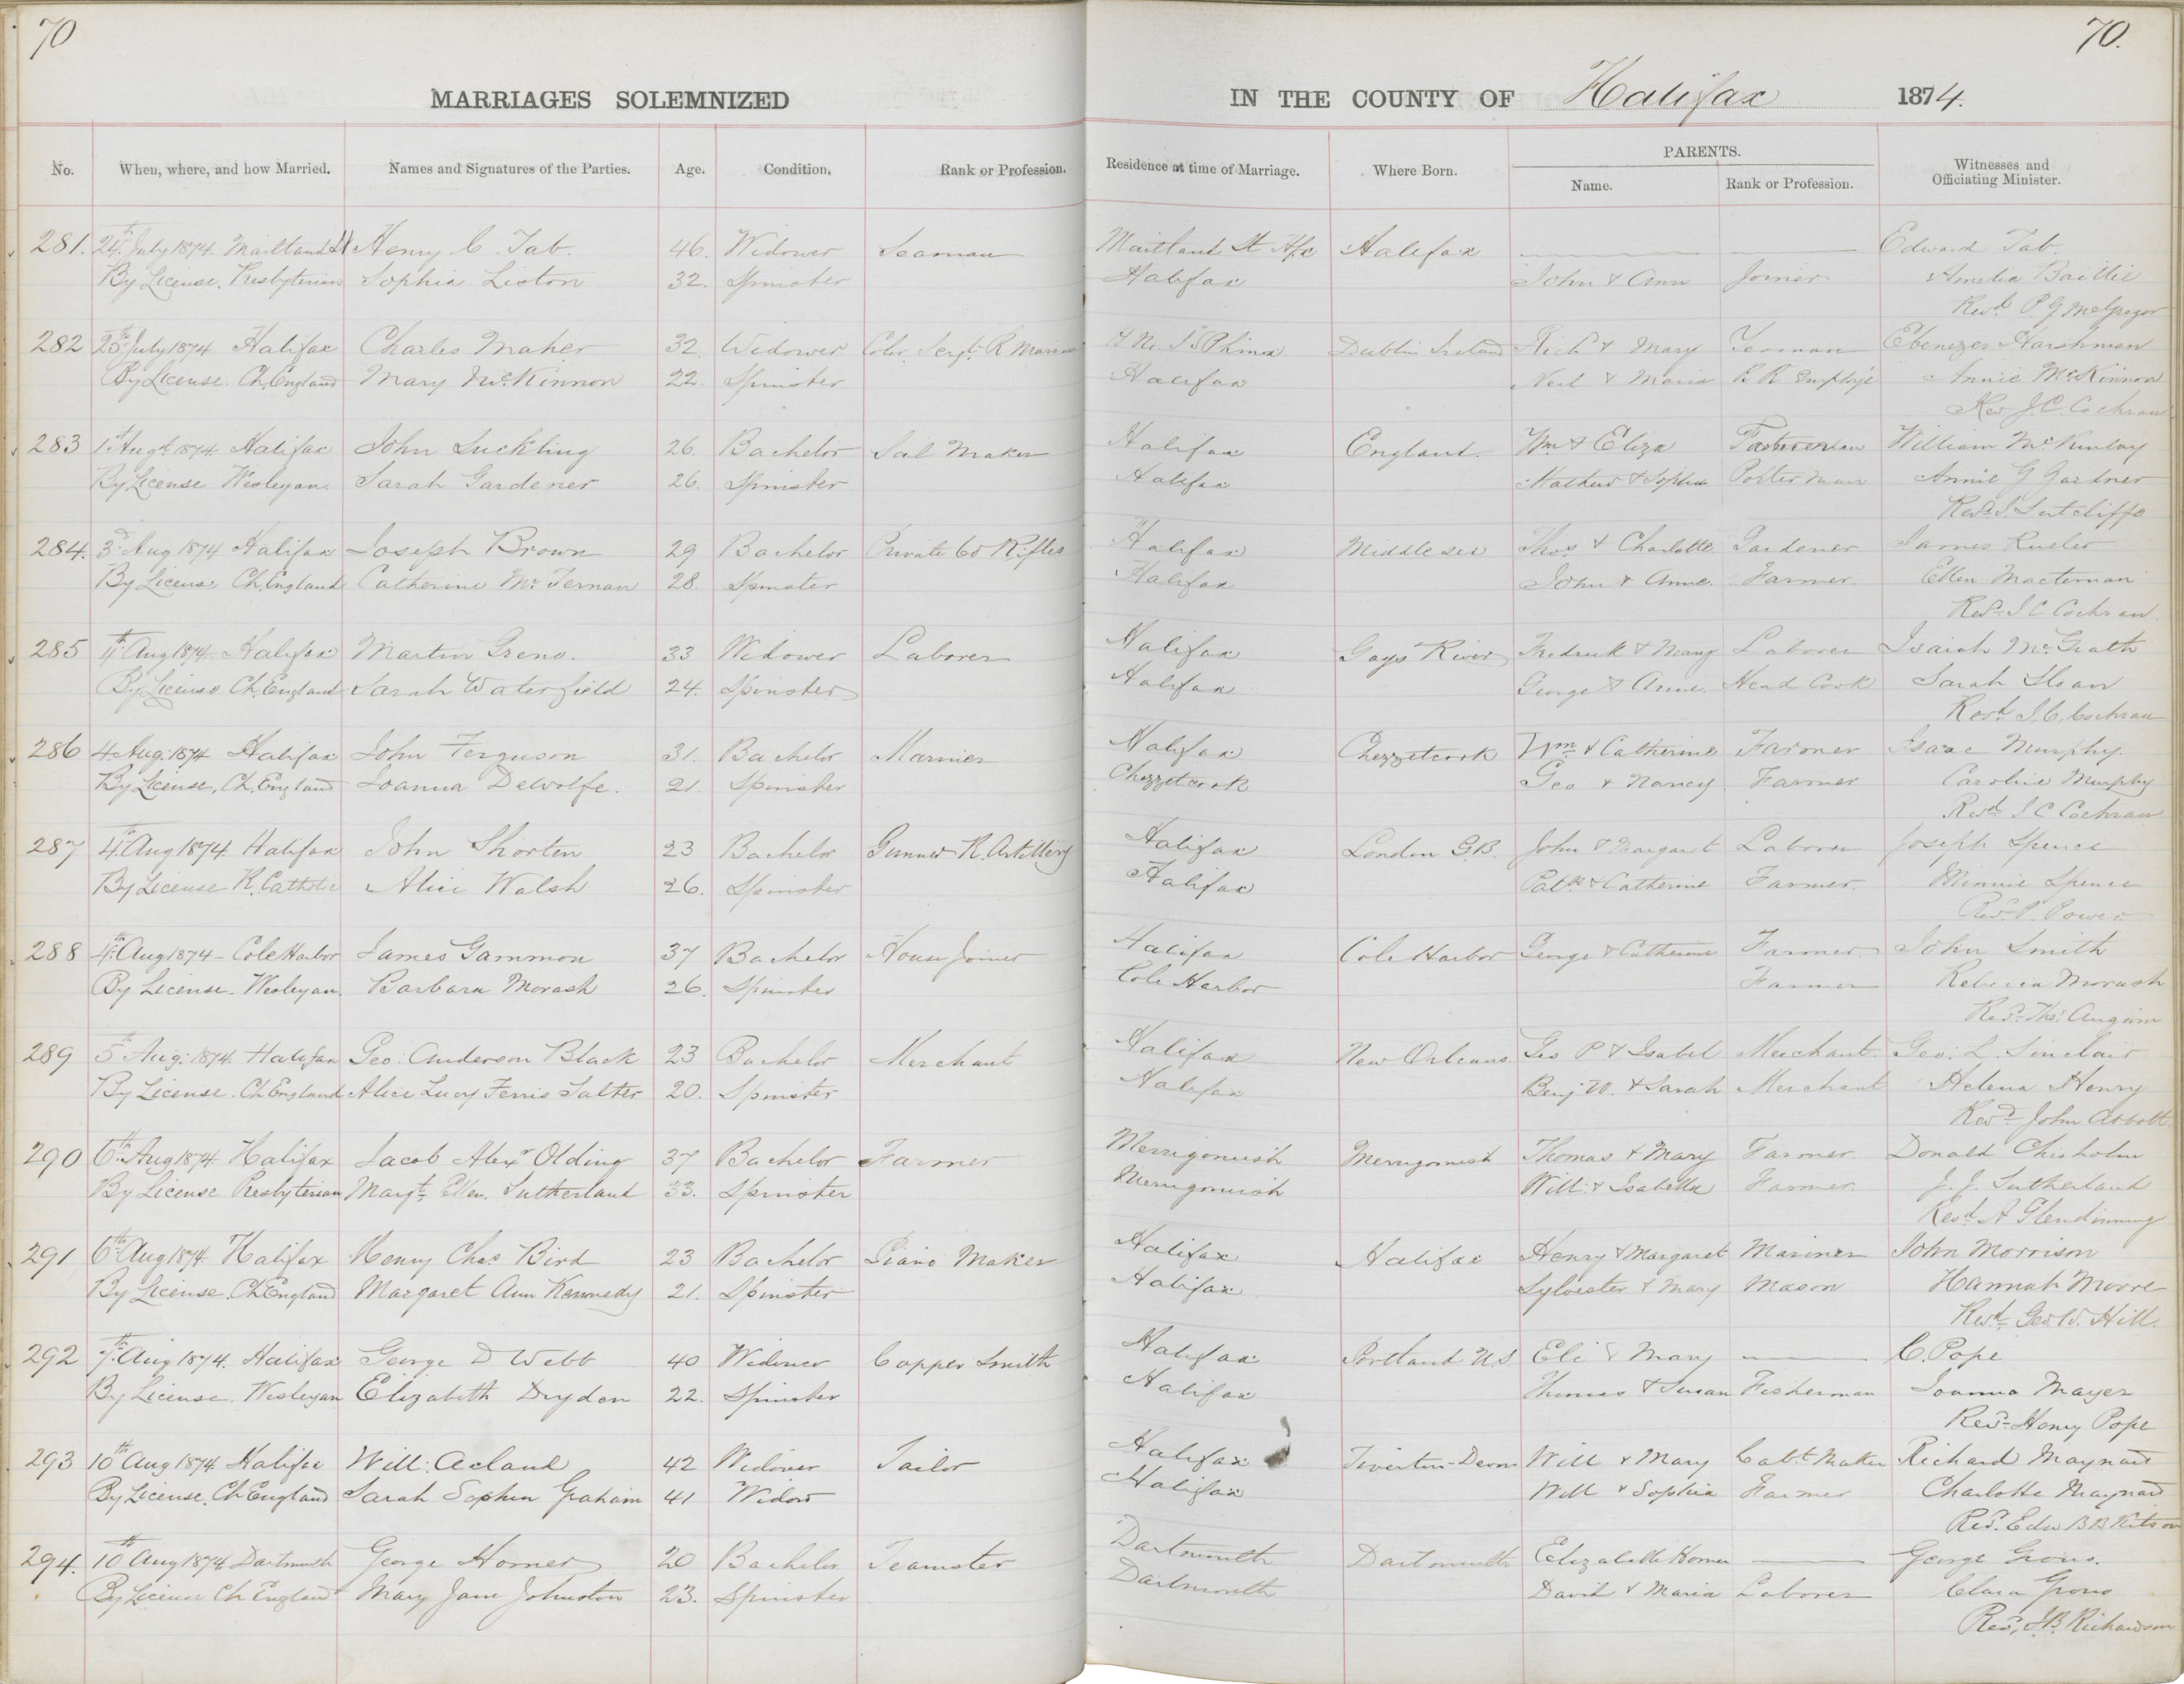 70
70.
MARRIAGES SOLEMNIZED IN THE COUNTY OF Halifax 1874.
No. When, where, and how Married. Names and Signatures of the Parties. Age. Condition. Rank or Profession. Residence at time of Marriage. Where Born. PARENTS. Name. Rank or Profession. Witnesses and Officiating Minister.
281. 24th July 1874. Maitland St Henry C. Tab. 46. Widower Seaman Maitland St Hfx Halifax Edward Tab
By License. Presbyterian Sophia Liston 32. Spinster Halifax John & Ann Joiner Amelia Baillie
Revd P. G. McGregor
282 25th July 1874 Halifax Charles Maher 32. Widower Color. Sergt. R Marines H. M. S. Sphinx Dublin Ireland Rich & Mary Yeoman Ebenezer Harshman
By License. Ch. England Mary McKinnon 22. Spinster Halifax Neil & Maria R R Employé Annie McKinnon
Rev J. C. Cochran
283 1st Augt 1874 Halifax John Suckling 26. Bachelor Sail Maker Halifax England. Wm & Eliza William McKinlay
By License Wesleyan. Sarah Gardener 26. Spinster Halifax Mathew & Sophia Porter man Annie G Gardner
Revd J. Sutcliffe
284. 3rd Aug 1874 Halifax Joseph Brown 29 Bachelor Private 60 Rifles Halifax Middlesex Thos & Charlotte Gardener James
By License Ch. England Catherine McTernan 28. Spinster Halifax John & Anne. Farmer Ellen Macternan
Revd J C Cochran.
285 4th Aug 1874 Halifax Martin Greno. 33 Widower Laborer Halifax Gays River Fredrick & Mary Laborer Isaiah McGrath
By License Ch. England Sarah Waterfield 24. Spinster Halifax George & Anne. Head Cook Sarah Sloan
Revd J. C. Cochran
286 4 Aug. 1874 Halifax John Ferguson 31. Bachelor Mariner Halifax Chezzetcook Wm & Catherine Farmer Isaac Murphy.
By License, Ch. England Joanna DeWolfe. 21. Spinster Chezzetcook Geo & Nancy Farmer Caroline Murphy
Revd J C Cochran
287 4th Aug 1874 Halifax John Shorten 23 Bachelor Gunner R. Artillery Halifax London G.B. John & Margaret Laborer Joseph Spence
By License R. Catholic Alice Walsh 26. Spinster Halifax Patk & Catherine Farmer. Minnie Spence
Revd P. Power
288 4th Aug 1874 - Cole Harbor James Gammon 37 Bachelor House Joiner Halifax Cole Harbor George & Catherine Farmer John Smith
By License. Wesleyan. Barbara Morash 26. Spinster Cole Harbor Farmer Rebecca Morash
Revd Thos Angwin
289 5th Aug: 1874. Halifax Geo: Anderson Black 23 Bachelor Merchant Halifax New Orleans Geo P & Isabel Merchant Geo: L. Sinclair
By License. Ch. England Alice Lucy Ferris Salter 20. Spinster Halifax Benj W. & Sarah Merchant Helena Henry
Revd John Abbott
290 6th Aug 1874 Halifax Jacob Alexr Olding 37 Bachelor Farmer Merrigomish Merrigomish Thomas & Mary Farmer. Donald Chisholm
By License Presbyterian Margt Ellen. Sutherland 33. Spinster Merrigomish Will: & Isabella Farmer. J. J. Sutherland
Revd A Glendinning
291 6th Aug 1874. Halifax Henry Chas Bird 23 Bachelor Piano Maker Halifax Halifax Henry & Margaret Mariner John Morrison
By License. Ch England Margaret Ann Kennedy 21. Spinster Halifax Sylvester & Mary Mason Hannah Moore
Revd Geo. W. Hill.
292 7th Aug 1874. Halifax George D Webb 40 Widower Copper Smith Halifax Portland U.S. Eli & Mary C. Pope
By License. Wesleyan Elizabeth Dryden 22. Spinster Halifax Thomas & Susan Fisherman Joanna Mayer
Revd Henry Pope
293 10th Aug 1874 Halifax Will: Acland 42 Widower Tailor Halifax Tiverton-Devon Will & Mary Cabt Maker Richard Maynard
By License. Ch England Sarah Sophia Graham 41 Widow Halifax Will & Sophia Farmer Charlotte Maynard
Revd. Edw B B Kitson
294. 10th Aug 1874 Dartmouth George Horner 20 Bachelor Teamster Dartmouth Dartmouth Elizabeth Horner George Grono.
By License Ch England Mary Jane Johnston 23. Spinster Dartmouth David & Maria Laborer Clara Grono
Revd, J. B. Richardson